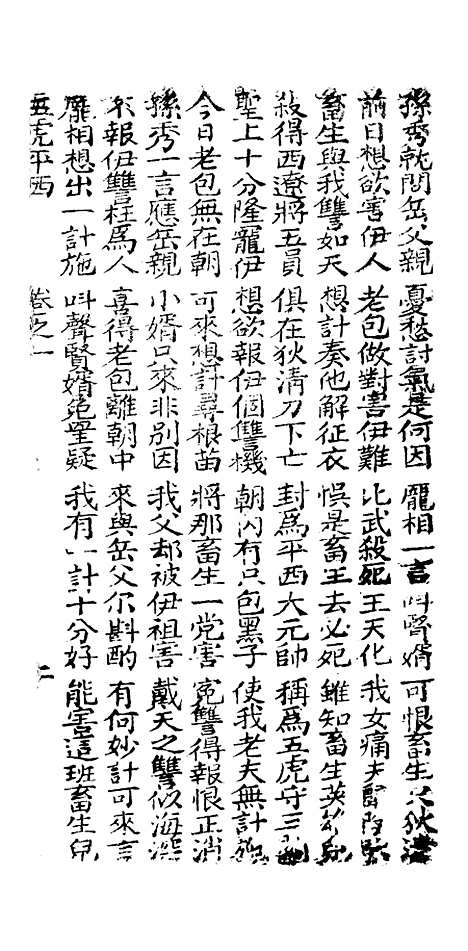 孫秀就問岳父親 憂愁討氣是何因 龐相一言呌賢婿 可恨畜生只狄清
前日想欲害伊人 老包做對害伊難 比武殺死王天化 我女痛夫
畜生與我讐如天 想計奏他解征衣 悞是畜王去必死 雖知畜生英
殺得西遼將五員 俱在狄清刀下亡 封為平西大元帥 稱為五虎守三
聖上十分隆寵伊 想欲報伊個讐機 朝內有只包黑子 使我老夫無計施
今日老包無在朝 可來想計尋根苗 將那畜生一党害 冤讐得報恨正消
孫秀一言應岳親 小婿只來非別因 我父却被伊祖害 戴天之讐似海深
不報伊讐枉為人 喜得老包離朝中 來與岳父尔斟酌 有何妙計可來言
龐相想出一計施 呌聲賢婿免罣疑 我有一計十分好 能害這班畜生兒
五虎平西 卷之一 二